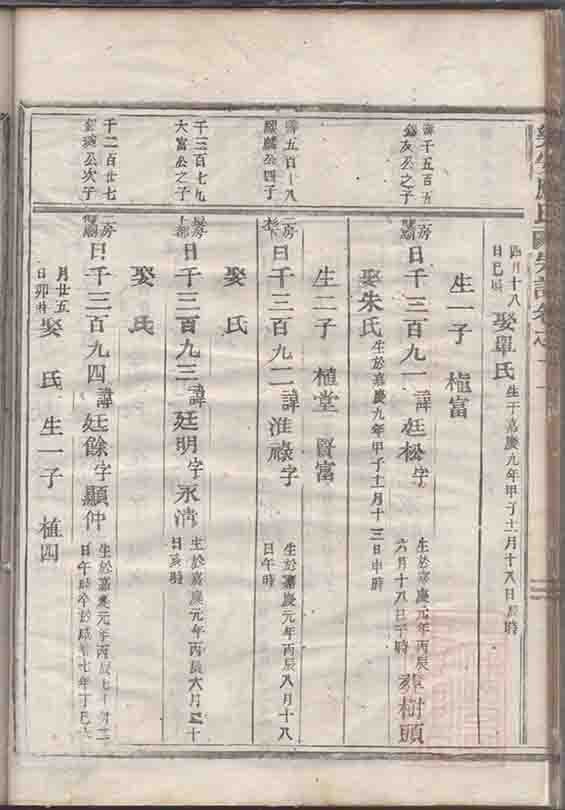 四月十八
日巳時
娶單氏
生于嘉慶九年甲子十二月十八日辰時
生一子 植富
千五百五
友公之子
房
曰千三百九一諱廷松字
生於嘉慶元年丙辰
六月十八日子時
葬樹頭
娶朱氏
生於嘉慶九年甲子十二月十三日申時
生二子 植堂 賢富
五百十八
麟公四子
二房
曰千三百九二諱淮祿字
生於嘉慶元年丙辰八月十八
日午時
娶 氏
千三百七九
大富公之子
房
曰千三百九三諱廷明字永清
生於嘉慶元年丙辰六月
日亥時
娶 氏
千二百廿七
公次子
二房
曰千三百九四諱廷餘字顯仲
生於嘉慶元年丙辰七
日午時卒於咸豐七年丁巳六
月廿五
日卯時
娶 氏 生一子 植四